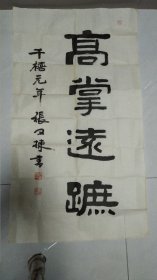 高掌遠蹠
千禧元年 張又棟書